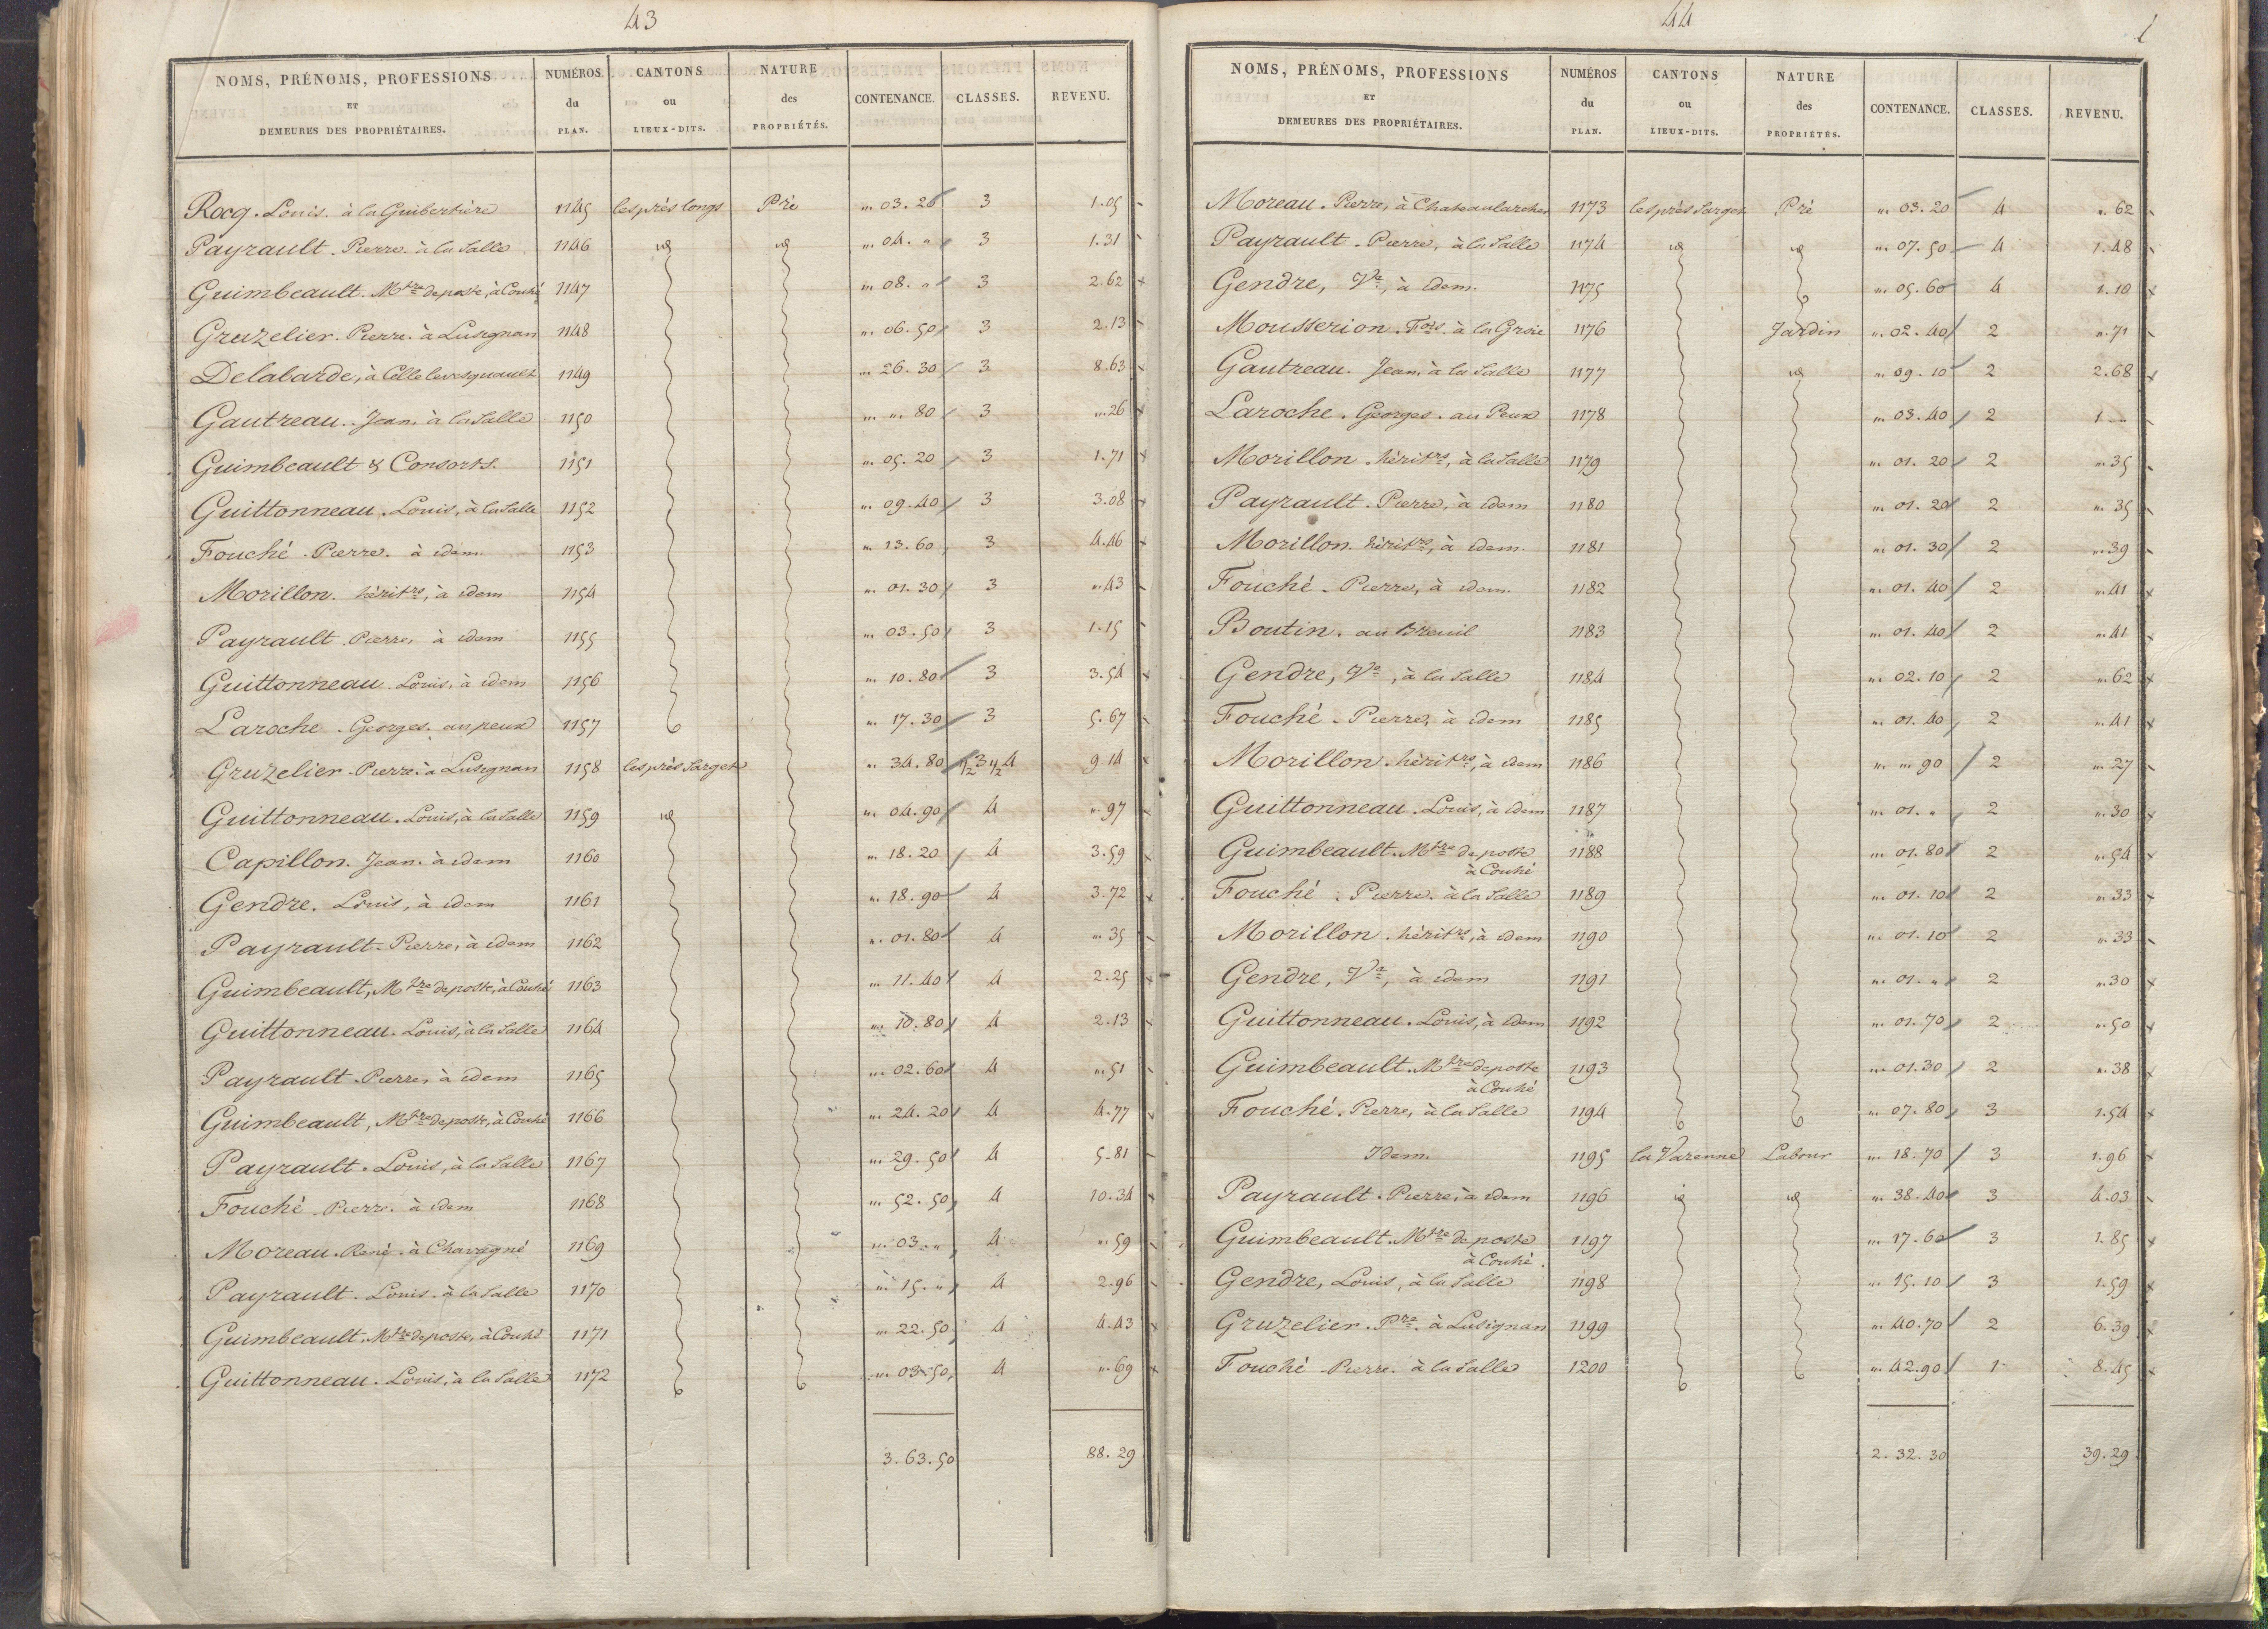 43
NOMS, PRÉNOMS, PROFESSIONS ET DEMEURES DES PROPRIÉTAIRES. NUMÉROS du PLAN. CANTONS ou LIEUX-DITS. NATURE des PROPRIÉTÉS. CONTENANCE. CLASSES. REVENU.
Rocq. Louis. à la Guibertière 1145 les près longs Pré " 03. 20 3 1. 05
Payrault. Pierre. à la Salle 1146 id id " 04. " 3 1. 31
Guimbeault. Mtre de poste, à Couhé 1147 " 08. " 3 2. 62
Gruzelier. Pierre. à Lusignan 1148 " 06. 50 3 2. 13
Delabarde, à Celle levesquault 1149 " 26. 30 3 8. 63
Gautreau. Jean, à la Salle 1150 " " 80 3 " 26
Guimbeault & Consorts. 1151 " 05. 20 3 1. 71
Guittonneau. Louis, à la Salle 1152 " 09. 40 3 3. 08
Fouché. Pierre. à idem 1153 " 13. 60 3 4. 46
Morillon. héritrs, à idem 1154 " 01. 30 3 " 43
Payrault. Pierre, à idem 1155 " 03. 50 3 1. 15
Guittonneau. Louis, à idem 1156 " 10. 80 3 3. 54
Laroche. Georges. au peux 1157 " 17. 30 3 5. 67
Gruzelier. Pierre. à Lusignan 1158 les près Sarget " 34. 80 1/2 3 1/2 4 9. 14
Guittonneau. Louis, à la Salle 1159 id " 04. 90 4 " 97
Capillon. Jean. à idem 1160 " 18. 20 4 3. 59
Gendre. Louis, à idem 1161 " 18. 90 4 3. 72
Payrault. Pierre, à idem 1162 " 01. 80 4 " 35
Guimbeault, Mtre de poste, à Couhé 1163 " 11. 40 4 2. 25
Guittonneau. Louis, à la Salle 1164 " 10. 80 4 2. 13
Payrault. Pierre, à idem 1165 " 02. 60 4 " 51
Guimbeault, Mtre de poste, à Couhé 1166 " 24. 20 4 4. 77
Payrault. Louis, à la Salle 1167 " 29. 50 4 5. 81
Fouché. Pierre. à idem 1168 " 52. 50 4 10. 34
Moreau. René. à Chavagné 1169 " 03. " 4 " 59
Payrault. Louis. à la Salle 1170 " 15. " 4 2. 96
Guimbeault. Mtre de poste, à Couhé 1171 " 22. 50 4 4. 43
Guittonneau. Louis, à la Salle 1172 " 03. 50 4 " 69
3. 63. 50 88. 29
44
NOMS, PRÉNOMS, PROFESSIONS ET DEMEURES DES PROPRIÉTAIRES. NUMÉROS du PLAN. CANTONS ou LIEUX-DITS. NATURE des PROPRIÉTÉS. CONTENANCE. CLASSES. REVENU.
Moreau. Pierre, à Chateaularcher 1173 les près Sarget Pré " 03. 20 4 " 62
Payrault. Pierre, à la Salle 1174 id id " 07. 50 4 1. 48
Gendre, Ve, à idem. 1175 " 05. 60 4 1. 10
Mousserion. Fois. à la Groie 1176 Jardin " 02. 40 2 " 71
Gautreau. Jean. à la Salle 1177 id " 09. 10 2 2. 68
Laroche. Georges. au Peux 1178 " 03. 40 2 1. "
Morillon. héritrs, à la Salle 1179 " 01. 20 2 " 35
Payrault. Pierre, à idem 1180 " 01. 20 2 " 35
Morillon. héritrs, à idem. 1181 " 01. 30 2 " 39
Fouché. Pierre, à idem. 1182 " 01. 40 2 " 41
Boutin. au Breuil 1183 " 01. 40 2 " 41
Gendre, Ve, à la Salle 1184 " 02. 10 2 " 62
Fouché. Pierre, à idem 1185 " 01. 40 2 " 41
Morillon. héritrs, à idem 1186 " " 90 2 " 27
Guittonneau. Louis, à idem 1187 " 01. " 2 " 30
Guimbeault. Mtre de poste à Couhé 1188 " 01. 80 2 " 54
Fouché. Pierre. à la Salle 1189 " 01. 10 2 " 33
Morillon. héritrs, à idem 1190 " 01. 10 2 " 33
Gendre, Ve, à idem 1191 " 01. " 2 " 30
Guittonneau. Louis, à idem 1192 " 01. 70 2 " 50
Guimbeault. Mtre de poste à Couhé 1193 " 01. 30 2 " 38
Fouché. Pierre, à la Salle 1194 " 07. 80 3 1. 54
Idem. 1195 la Varenne Labour " 18. 70 3 1. 96
Payrault. Pierre, à idem 1196 id id " 38. 40 3 4. 03
Guimbeault. Mtre de poste à Couhé. 1197 " 17. 60 3 1. 85
Gendre, Louis, à la Salle 1198 " 15. 10 3 1. 59
Gruzelier. Pre. à Lusignan 1199 " 40. 70 2 6. 39
Fouché. Pierre. à la Salle 1200 " 42. 90 1 8. 45
2. 32. 30 39. 29